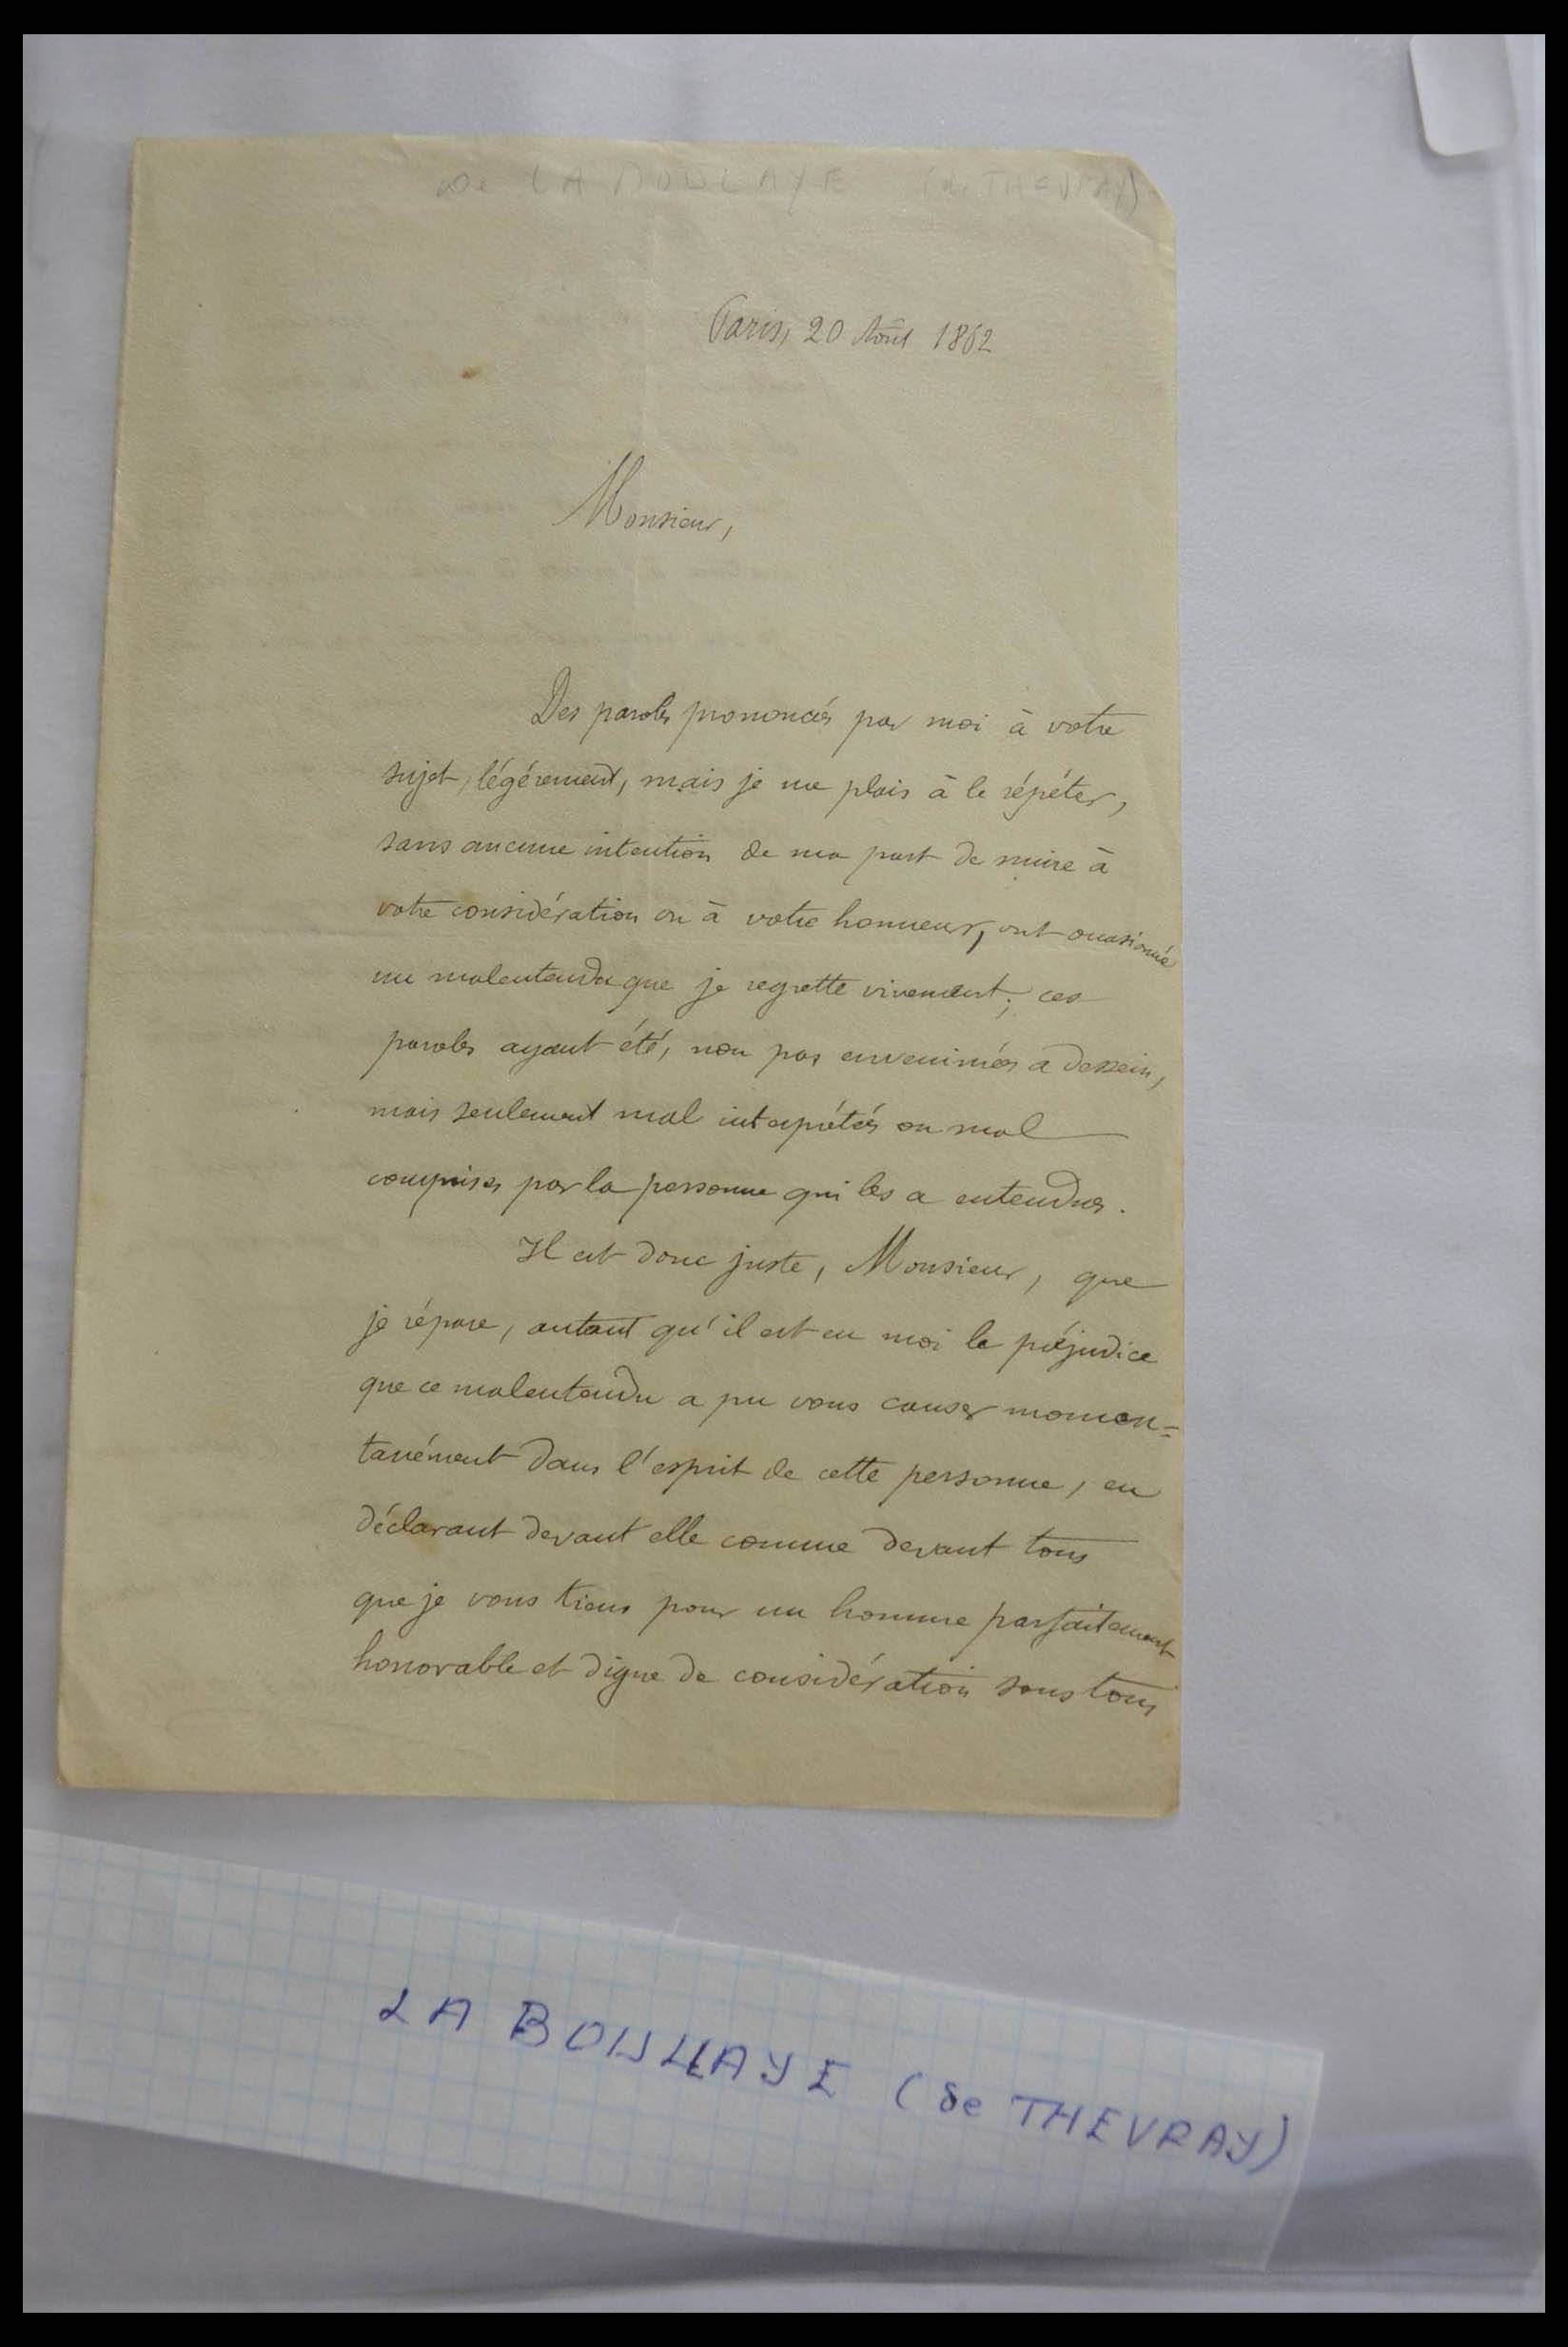 De LA BOULAYE (de THEVRAY)
Paris, 20 Août 1862
Monsieur,
Des paroles prononcées par moi à votre
sujet, légérement, mais je me plais à le répéter,
sans aucune intention de ma part de nuire à
votre considération ou à votre honneur, ont occasionné
un malentendu que je regrette vivement; ces
paroles ayant été, non pas envenimées a dessein,
mais seulement mal interprétées ou mal
comprises par la personne qui les a entendues.
Il est donc juste, Monsieur, que
je répare, autant qu'il est en moi le préjudice
que ce malentendu a pu vous causer momen=
tanément dans l'esprit de cette personne, en
déclarant devant elle comme devant tous
que je vous tiens pour un homme parfaitement
honorable et digne de considération sous tous
LA BOULLAYE (de THEVRAY)